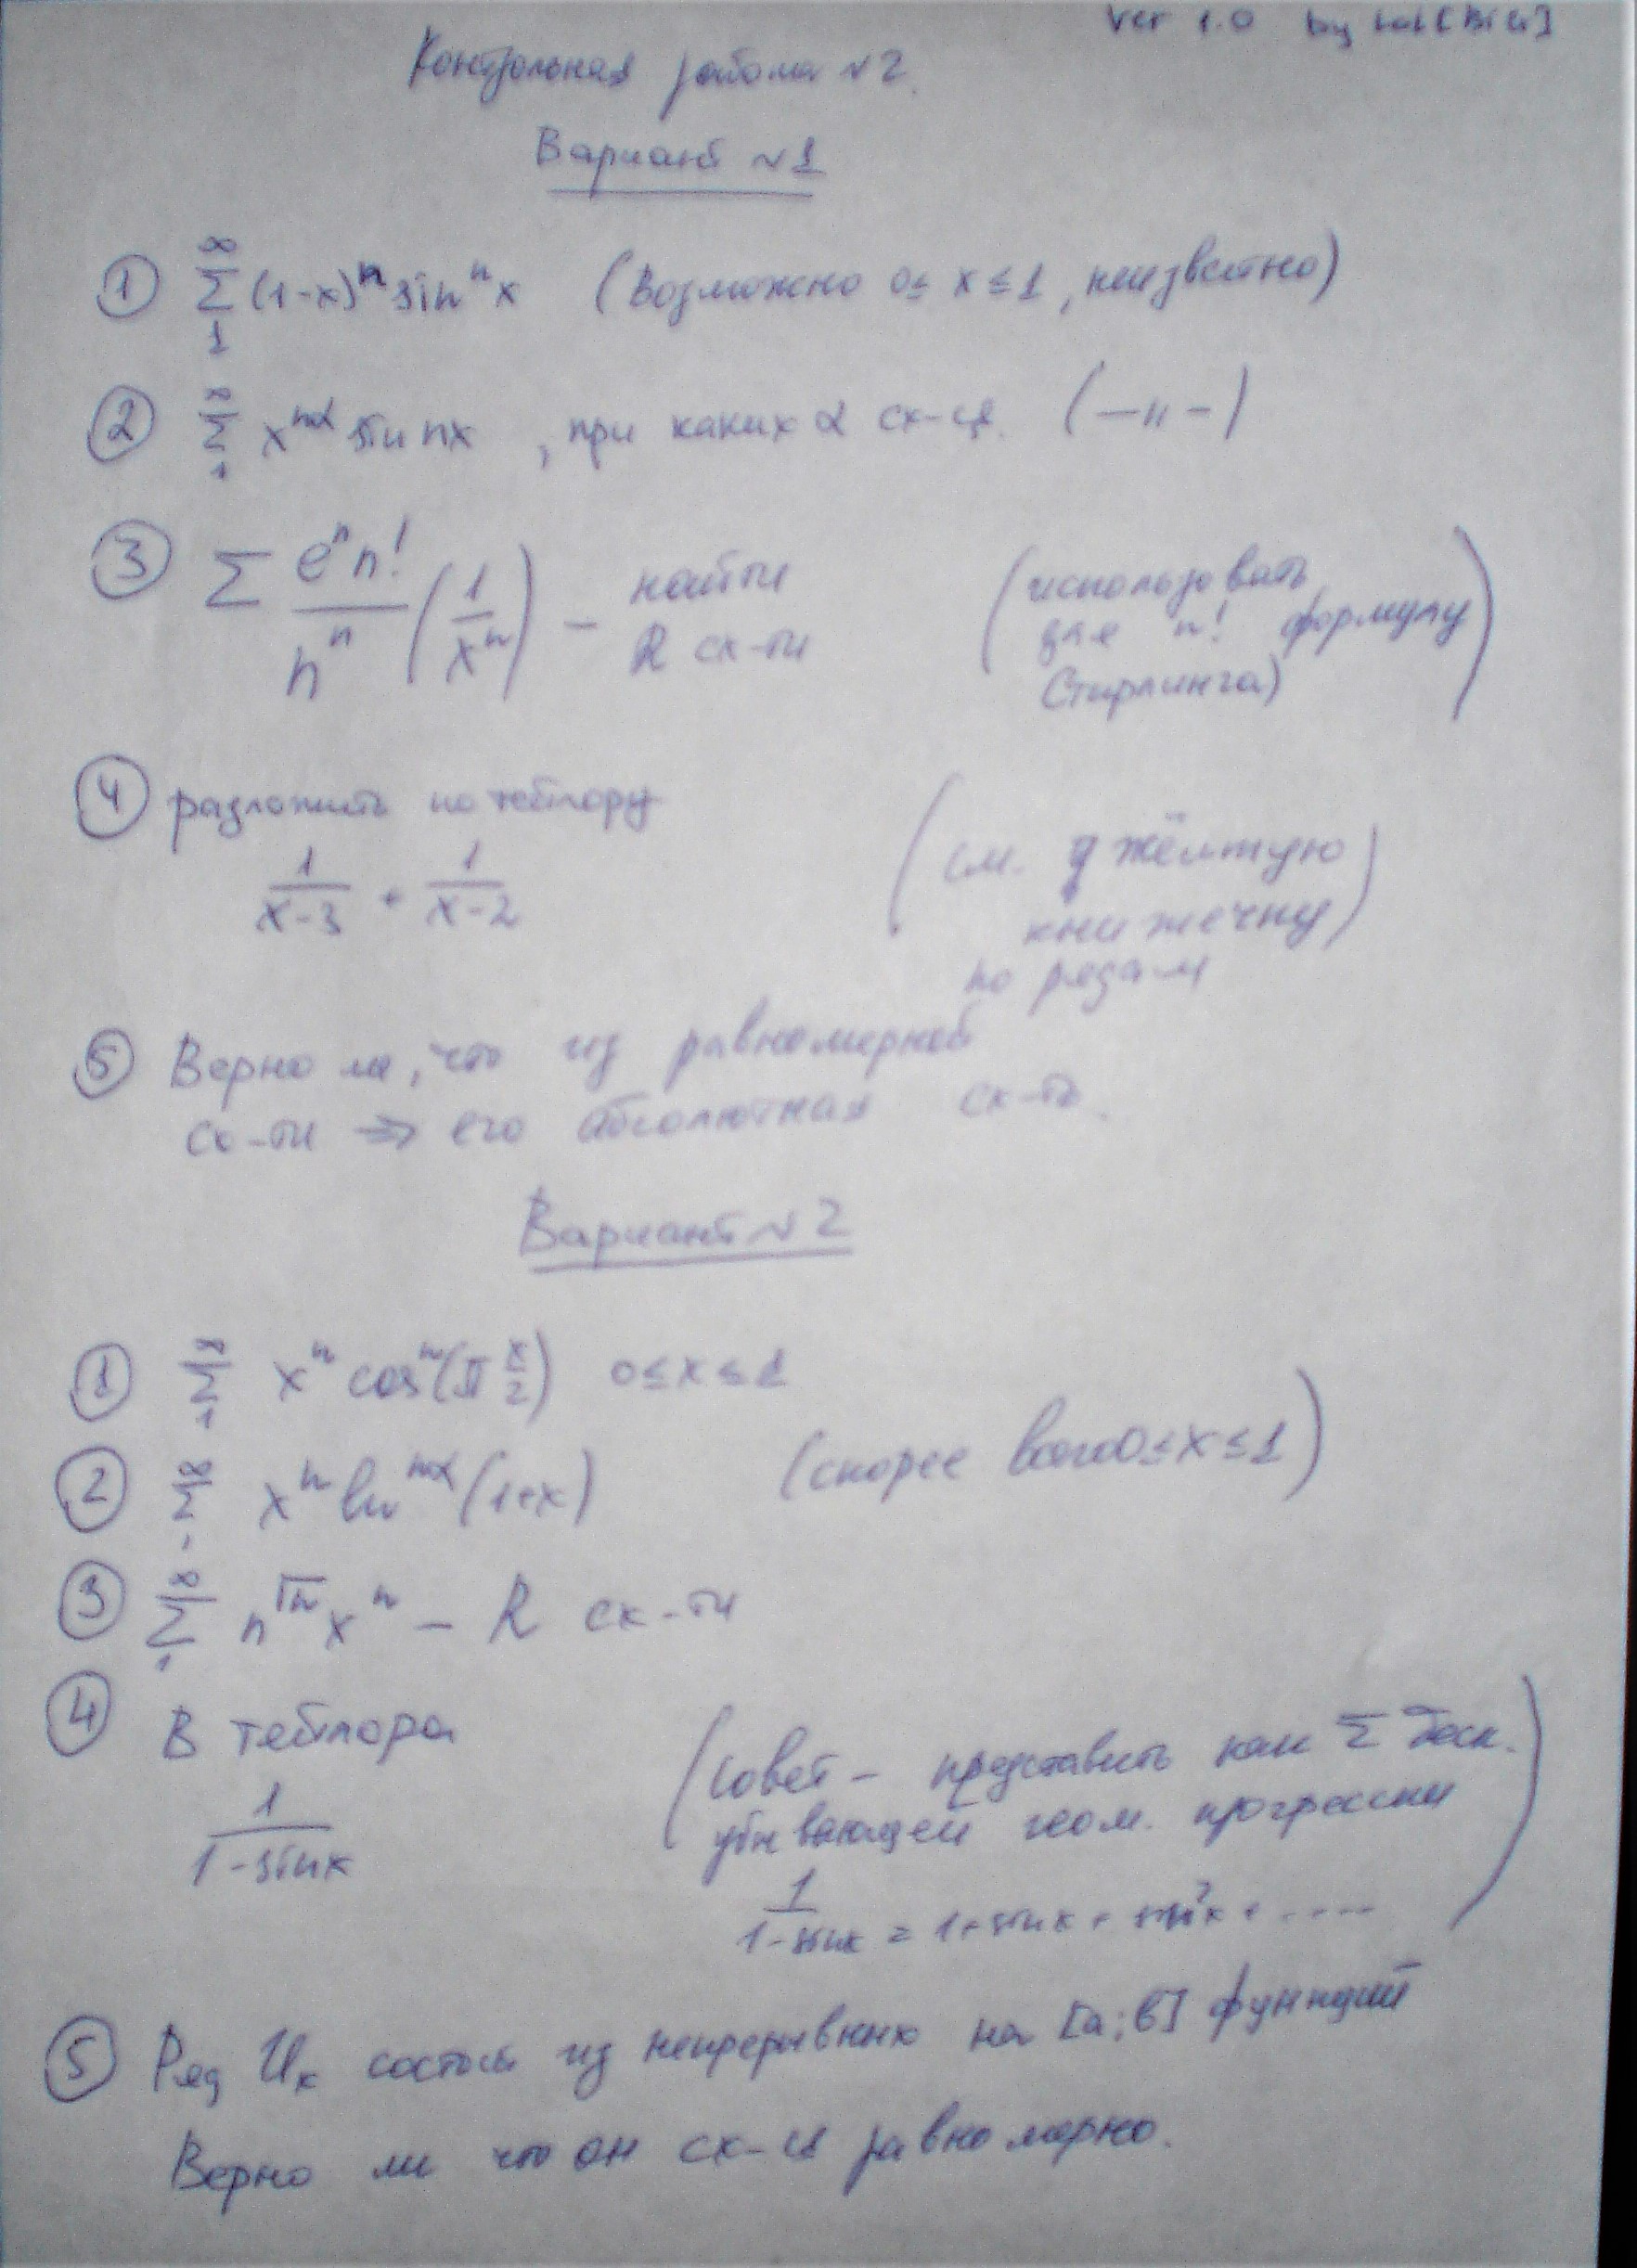 Ver 1.0 by
Контрольная работа №2.
Вариант №1
① ∞ Σ 1 (1-x)ⁿ sinⁿx (Возможно 0≤ x ≤1, неизвестно)
② ∞ Σ 1 x^(nα) sin nx , при каких α сх-ся. (—"—)
③ Σ eⁿn!/nⁿ (1/xⁿ) — найти R сх-ти (использовать для n! формулу Стирлинга)
④ разложить по тейлору
1/(x-3) + 1/(x-2) (см. жёлтую
книжечку)
по рядам
⑤ Верно ли, что из равномерной
сх-ти ⇒ его абсолютная сх-ть.
Вариант №2
① ∞ Σ 1 xⁿ cosⁿ(π x/2) 0≤x≤1
② ∞ Σ 1 xⁿ ln^(nα)(1+x) (скорее всего 0≤x≤1)
③ ∞ Σ 1 n^(√n) xⁿ — R сх-ти
④ В тейлора
1/(1-sinx) (совет — представить как Σ беск.
убывающей геом. прогрессии
1/(1-sinx) = 1+sinx+sin²x+.....)
⑤ Ряд Uₖ состоит из непрерывных на [a;b] функций
Верно ли что он сх-ся равномерно.